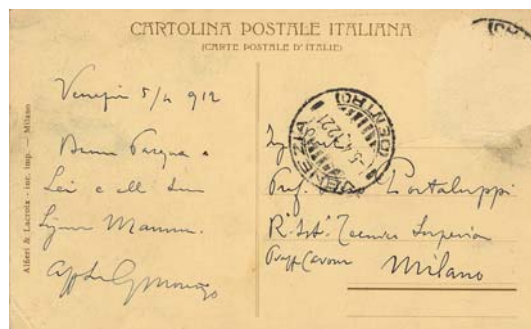 CARTOLINA POSTALE ITALIANA
(CARTE POSTALE D'ITALIE)
Alfieri & Lacroix - inc. imp. — Milano
Venezia 5/4 912
Buona Pasqua a
Lei e alla Sua
Signora Mamma.
VENEZIA
(CENTRO)
Prof. Portaluppi
R. Ist. Tecnico Superiore
Piazza Cavour
Milano